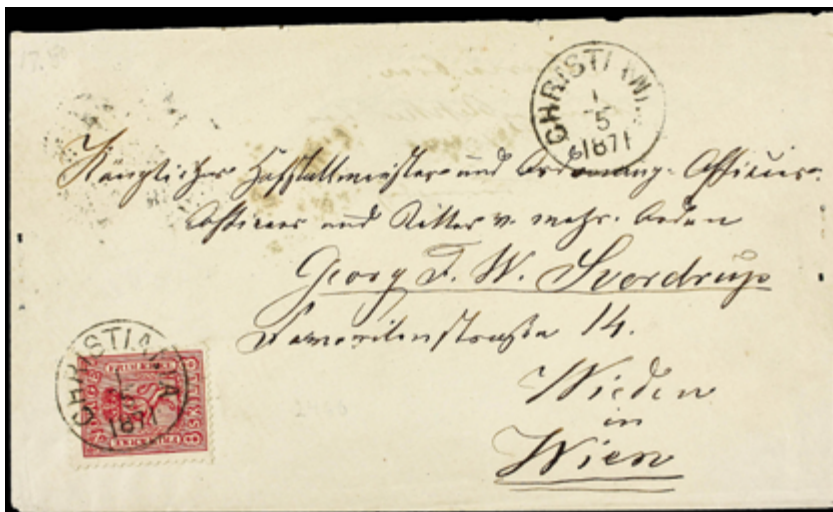 CHRISTIANIA
1
5
1871
Königlicher Hofstallmeister und Ordonnanz-Officier.
Officiers und Ritter v. mehr. Orden
Georg F. W. Sverdrup
Favoritenstraße 14.
Wieden
in
Wien
CHRISTIANIA
1
5
1871
FRIMÆRKE